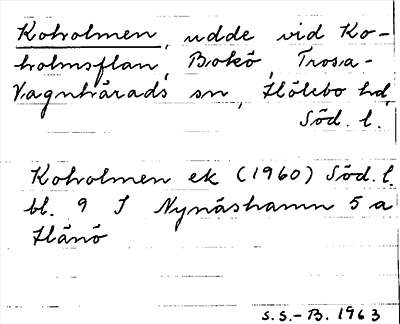 Koholmen, udde vid Ko-
holmsflan, Bokö, Trosa-
Vagnhärads sn, Hölebo hd,
Söd. l.
Koholmen ek (1960) Söd. l.
bl. 9 I Nynäshamn 5 a
Hånö
S.S.-B. 1963